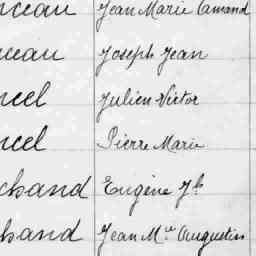 ceau Jean Marie Amand
ceau Joseph Jean
cel Julien Victor
cel Pierre Marie
chand Eugène Jh
chand Jean Mie Augustin